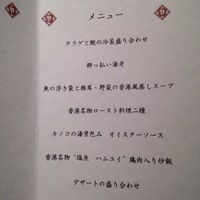 メニュー
クラゲと鮑の冷菜盛り合わせ
酔っ払い海老
魚の浮き袋と椎茸・野菜の香港風蒸しスープ
香港名物ロースト料理二種
キノコの湯葉包み　オイスターソース
香港名物“塩魚　ハムユイ”鶏肉入り炒飯
デザートの盛り合わせ